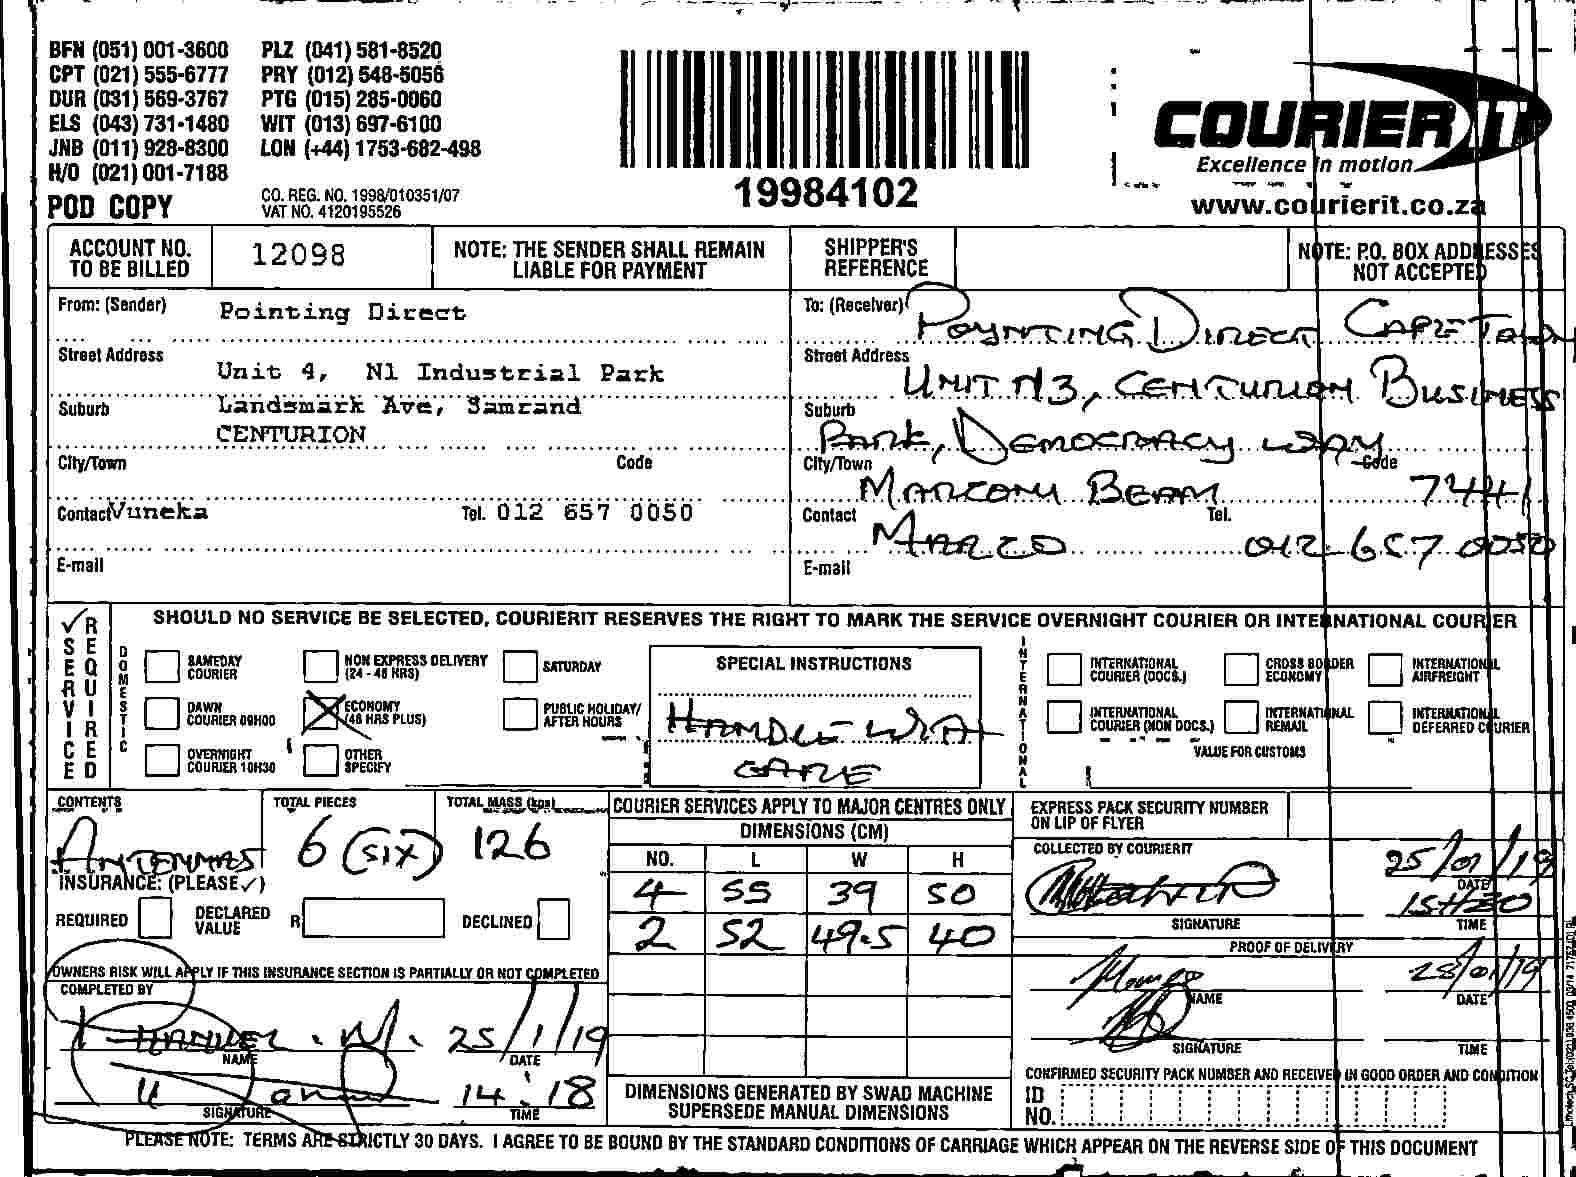 BFN (051) 001-3600 PLZ (041) 581-8520
CPT (021) 555-6777 PRY (012) 548-5056
DUR (031) 569-3767 PTG (015) 285-0060
ELS (043) 731-1480 WIT (013) 697-6100
JNB (011) 928-8300 LON (+44) 1753-682-498
H/O (021) 001-7188
POD COPY
CO. REG. NO. 1998/010351/07
VAT NO. 4120195526
19984102
COURIER IT
Excellence in motion
www.courierit.co.za
ACCOUNT NO. TO BE BILLED
12098
NOTE: THE SENDER SHALL REMAIN
LIABLE FOR PAYMENT
SHIPPER'S
REFERENCE
NOTE: P.O. BOX ADDRESSES
NOT ACCEPTED
From: (Sender) Pointing Direct
Street Address Unit 4, N1 Industrial Park
Suburb Landsmark Ave, Samrand
CENTURION
City/Town Code
Contact Vuneka Tel. 012 657 0050
E-mail
To: (Receiver) POYNTING DIRECT CAPE TOWN
Street Address UNIT N3, CENTURION BUSINESS
Suburb PARK, DEMOCRACY WAY
City/Town MARCONI BEAM Code 7441
Contact MARCO Tel. 012 657 0050
E-mail
SERVICE REQUIRED
SHOULD NO SERVICE BE SELECTED, COURIERIT RESERVES THE RIGHT TO MARK THE SERVICE OVERNIGHT COURIER OR INTERNATIONAL COURIER
DOMESTIC
SAMEDAY COURIER
NON EXPRESS DELIVERY (24 - 48 HRS)
SATURDAY
DAWN COURIER 09H00
ECONOMY (48 HRS PLUS)
PUBLIC HOLIDAY/ AFTER HOURS
OVERNIGHT COURIER 10H30
OTHER SPECIFY
SPECIAL INSTRUCTIONS
HANDLE WITH
CARE
INTERNATIONAL
INTERNATIONAL COURIER (DOCS.)
CROSS BORDER ECONOMY
INTERNATIONAL AIRFREIGHT
INTERNATIONAL COURIER (NON DOCS.)
INTERNATIONAL REMAIL
INTERNATIONAL DEFERRED COURIER
VALUE FOR CUSTOMS
CONTENTS ANTENNAS
TOTAL PIECES 6 (SIX)
TOTAL MASS (kgs) 126
INSURANCE: (PLEASE ✓)
REQUIRED DECLARED VALUE R DECLINED
OWNERS RISK WILL APPLY IF THIS INSURANCE SECTION IS PARTIALLY OR NOT COMPLETED
COMPLETED BY
25/1/19
NAME DATE
14:18
SIGNATURE TIME
COURIER SERVICES APPLY TO MAJOR CENTRES ONLY
DIMENSIONS (CM)
NO. L W H
4 55 39 50
2 52 49.5 40
DIMENSIONS GENERATED BY SWAD MACHINE
SUPERSEDE MANUAL DIMENSIONS
EXPRESS PACK SECURITY NUMBER
ON LIP OF FLYER
COLLECTED BY COURIERIT
25/01/19
DATE
SIGNATURE TIME
PROOF OF DELIVERY
28/01/19
NAME DATE
SIGNATURE TIME
CONFIRMED SECURITY PACK NUMBER AND RECEIVED IN GOOD ORDER AND CONDITION
ID NO.
PLEASE NOTE: TERMS ARE STRICTLY 30 DAYS. I AGREE TO BE BOUND BY THE STANDARD CONDITIONS OF CARRIAGE WHICH APPEAR ON THE REVERSE SIDE OF THIS DOCUMENT